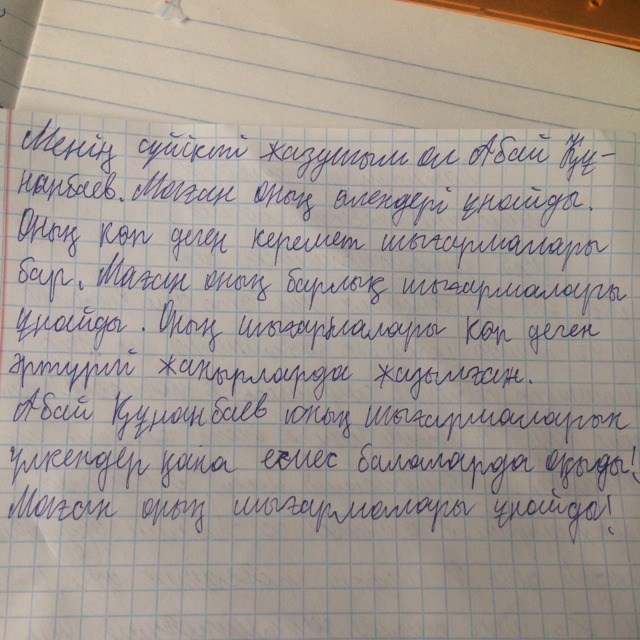 Менің сүйікті жазушым ол Абай Құ-
нанбаев. Маған оның өлендері ұнайды.
Оның көп деген керемет шығармалары
бар. Маған оның барлық шығармалары
ұнайды. Оның шығармалары көп деген
әртүрлі жанырларда жазылған.
Абай Құнанбаев юның шығармаларын
үлкендер қана емес балаларда оқыды!
Маған оның шығармалары ұнайды!